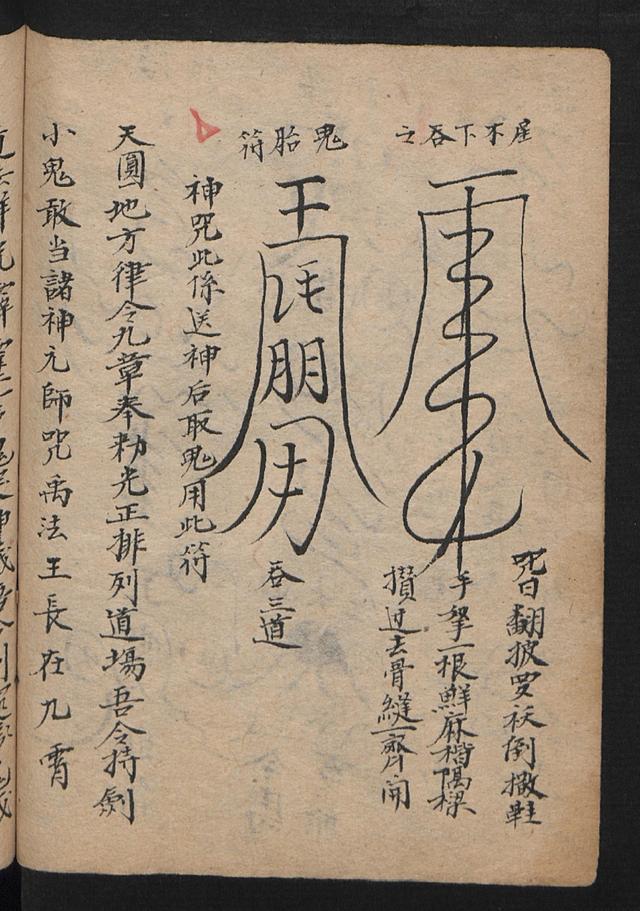 不下吞之
咒曰翻披罗袄倒撒鞋
手拏一根鮮麻楷隔樑
攢过去骨縫一齊開
鬼胎符
王
朋
用
吞三道
神咒此係送神后取鬼用此符
天圓地方律令九章奉勑光正排列道場吾令持劍
小鬼敢当諸神元師咒禹法王長在九霄